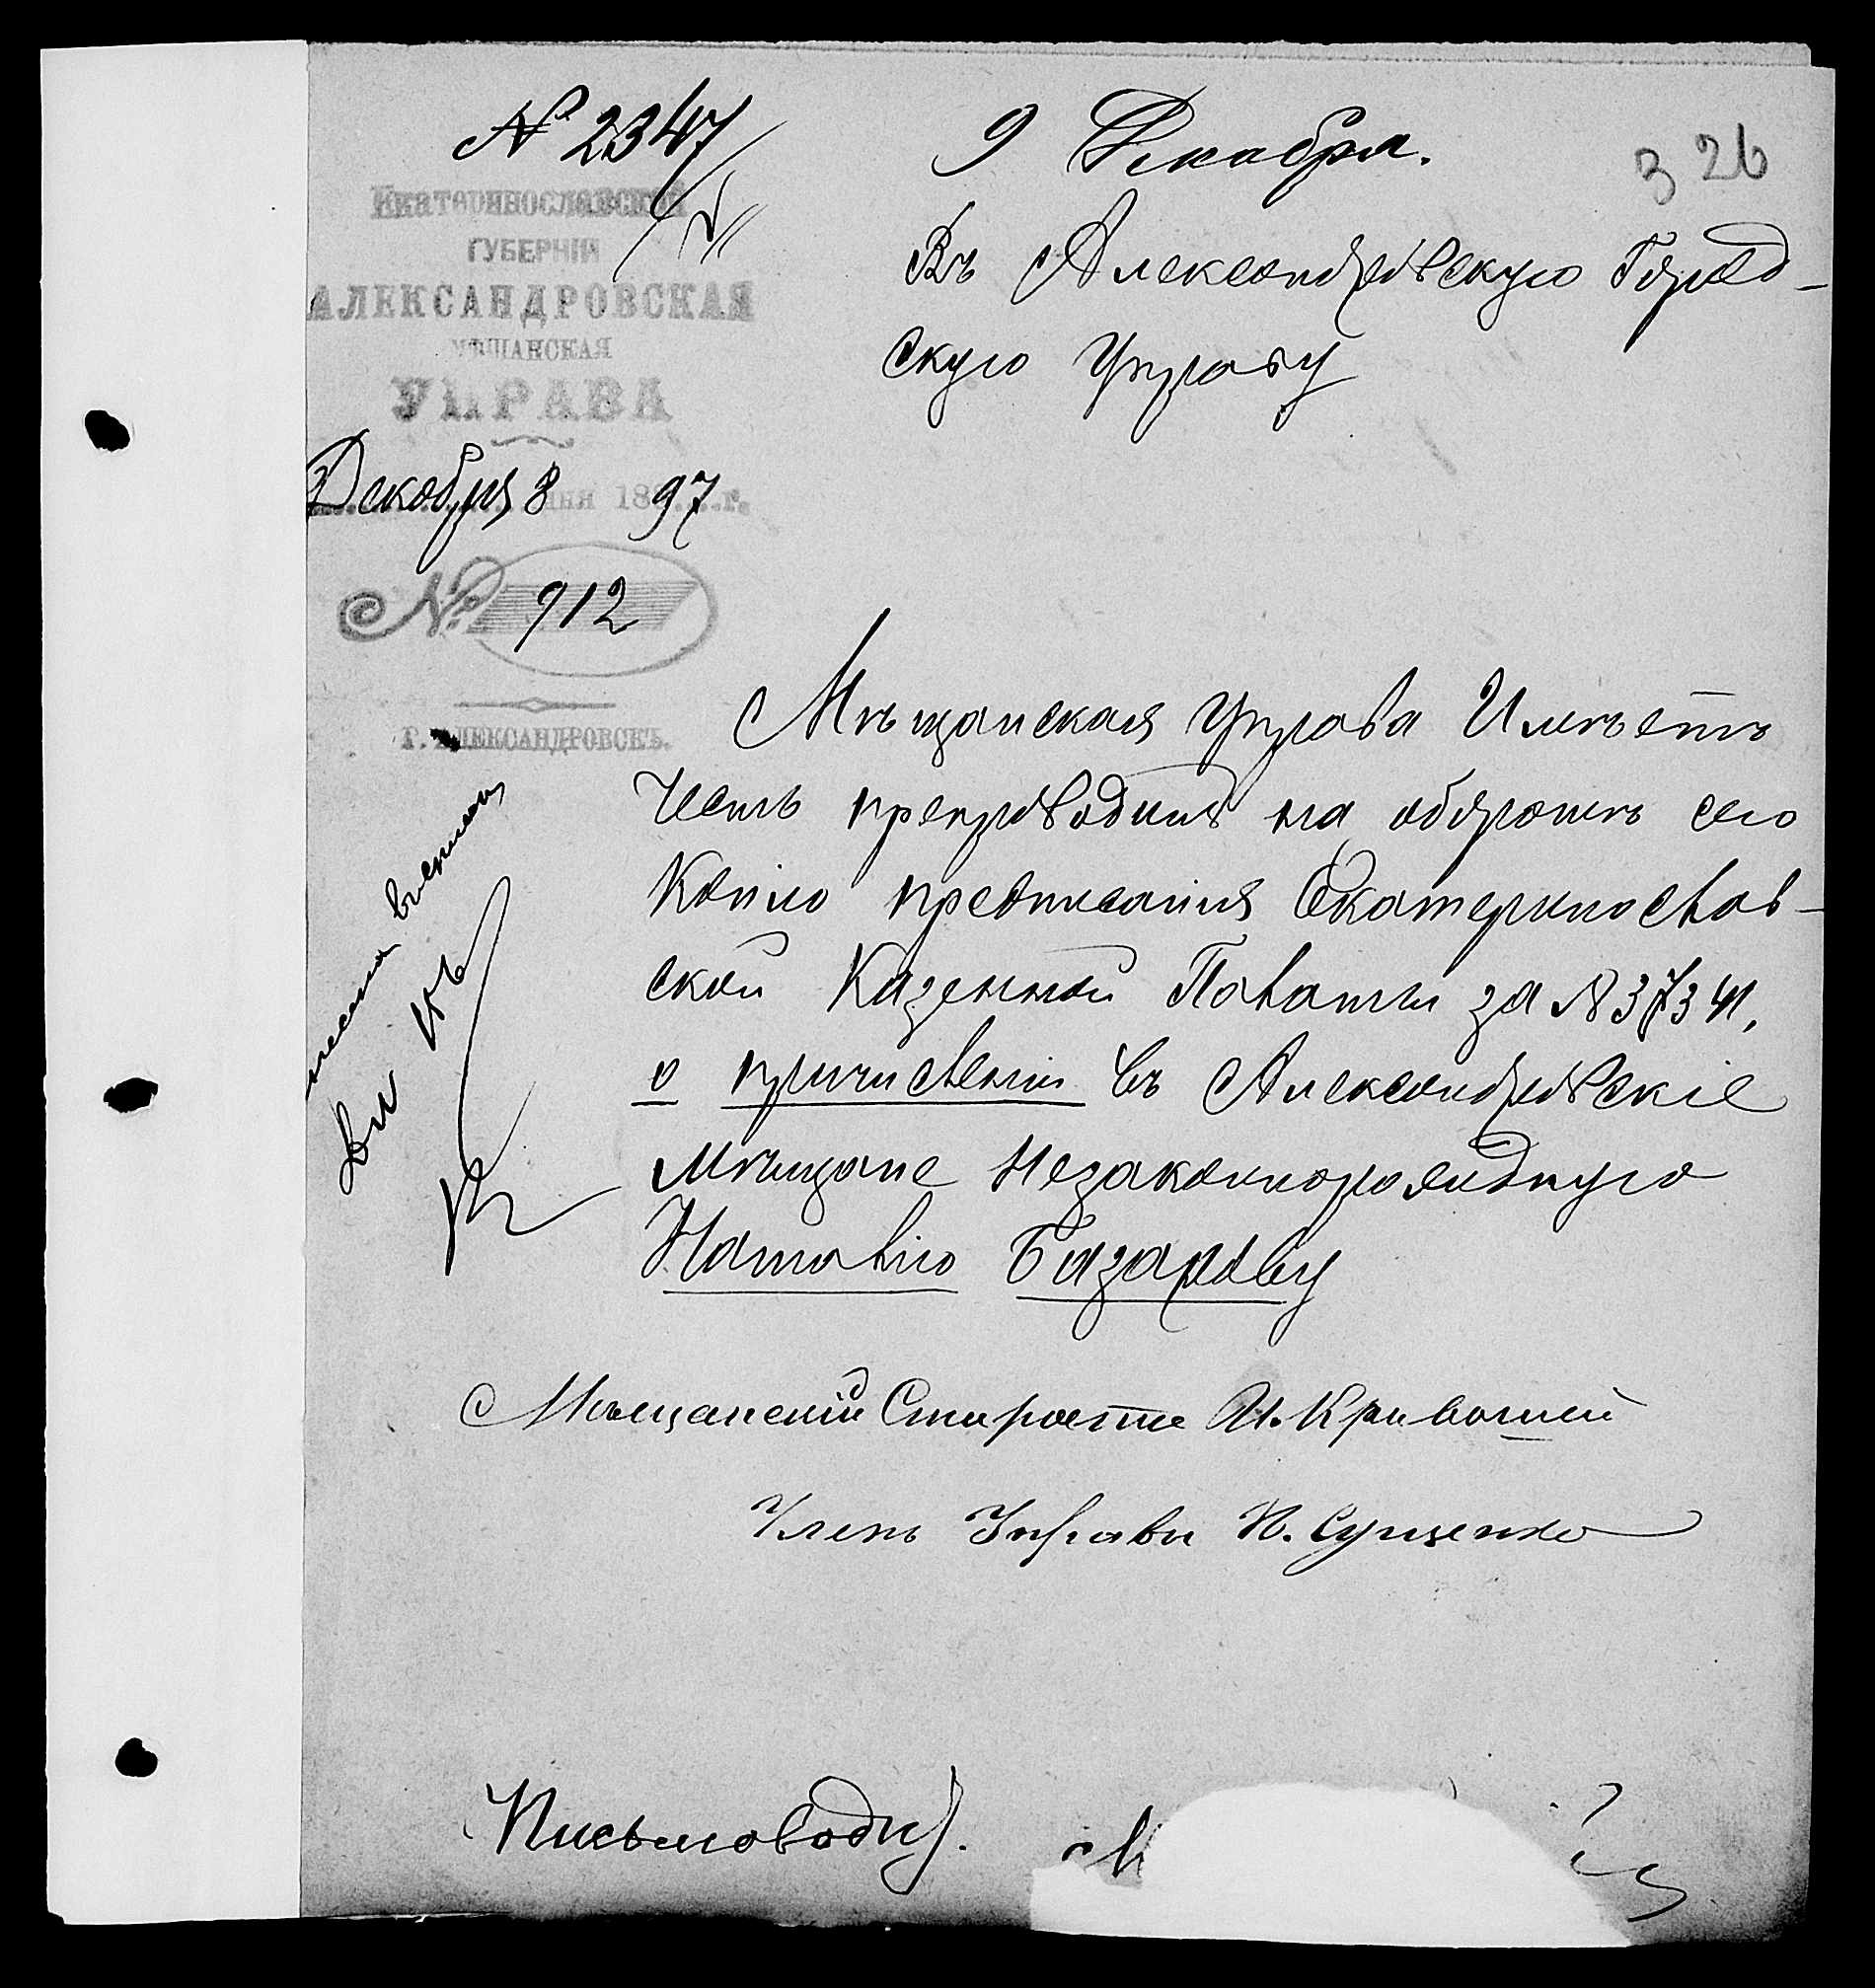 № 2347
9 Декабря.
326
Екатеринославской
ГУБЕРНІИ
АЛЕКСАНДРОВСКАЯ
МѢЩАНСКАЯ
УПРАВА
Декабря 8 дня 1897 г.
№ 912
Г. АЛЕКСАНДРОВСКЪ.
Въ Александровскую Город-
скую Управу
Мѣщанская Управа Имѣетъ
честь препроводить на оборотѣ сего
Копію предписанія Екатеринослав-
ской Казенной Палаты за № 37341,
о причисленіи въ Александровскіе
мѣщане Незаконнорожденную
Наталію Базарову
Мѣщанскій Староста И. Кривошей
Членъ Управы И. Сущенко
Письмовод.